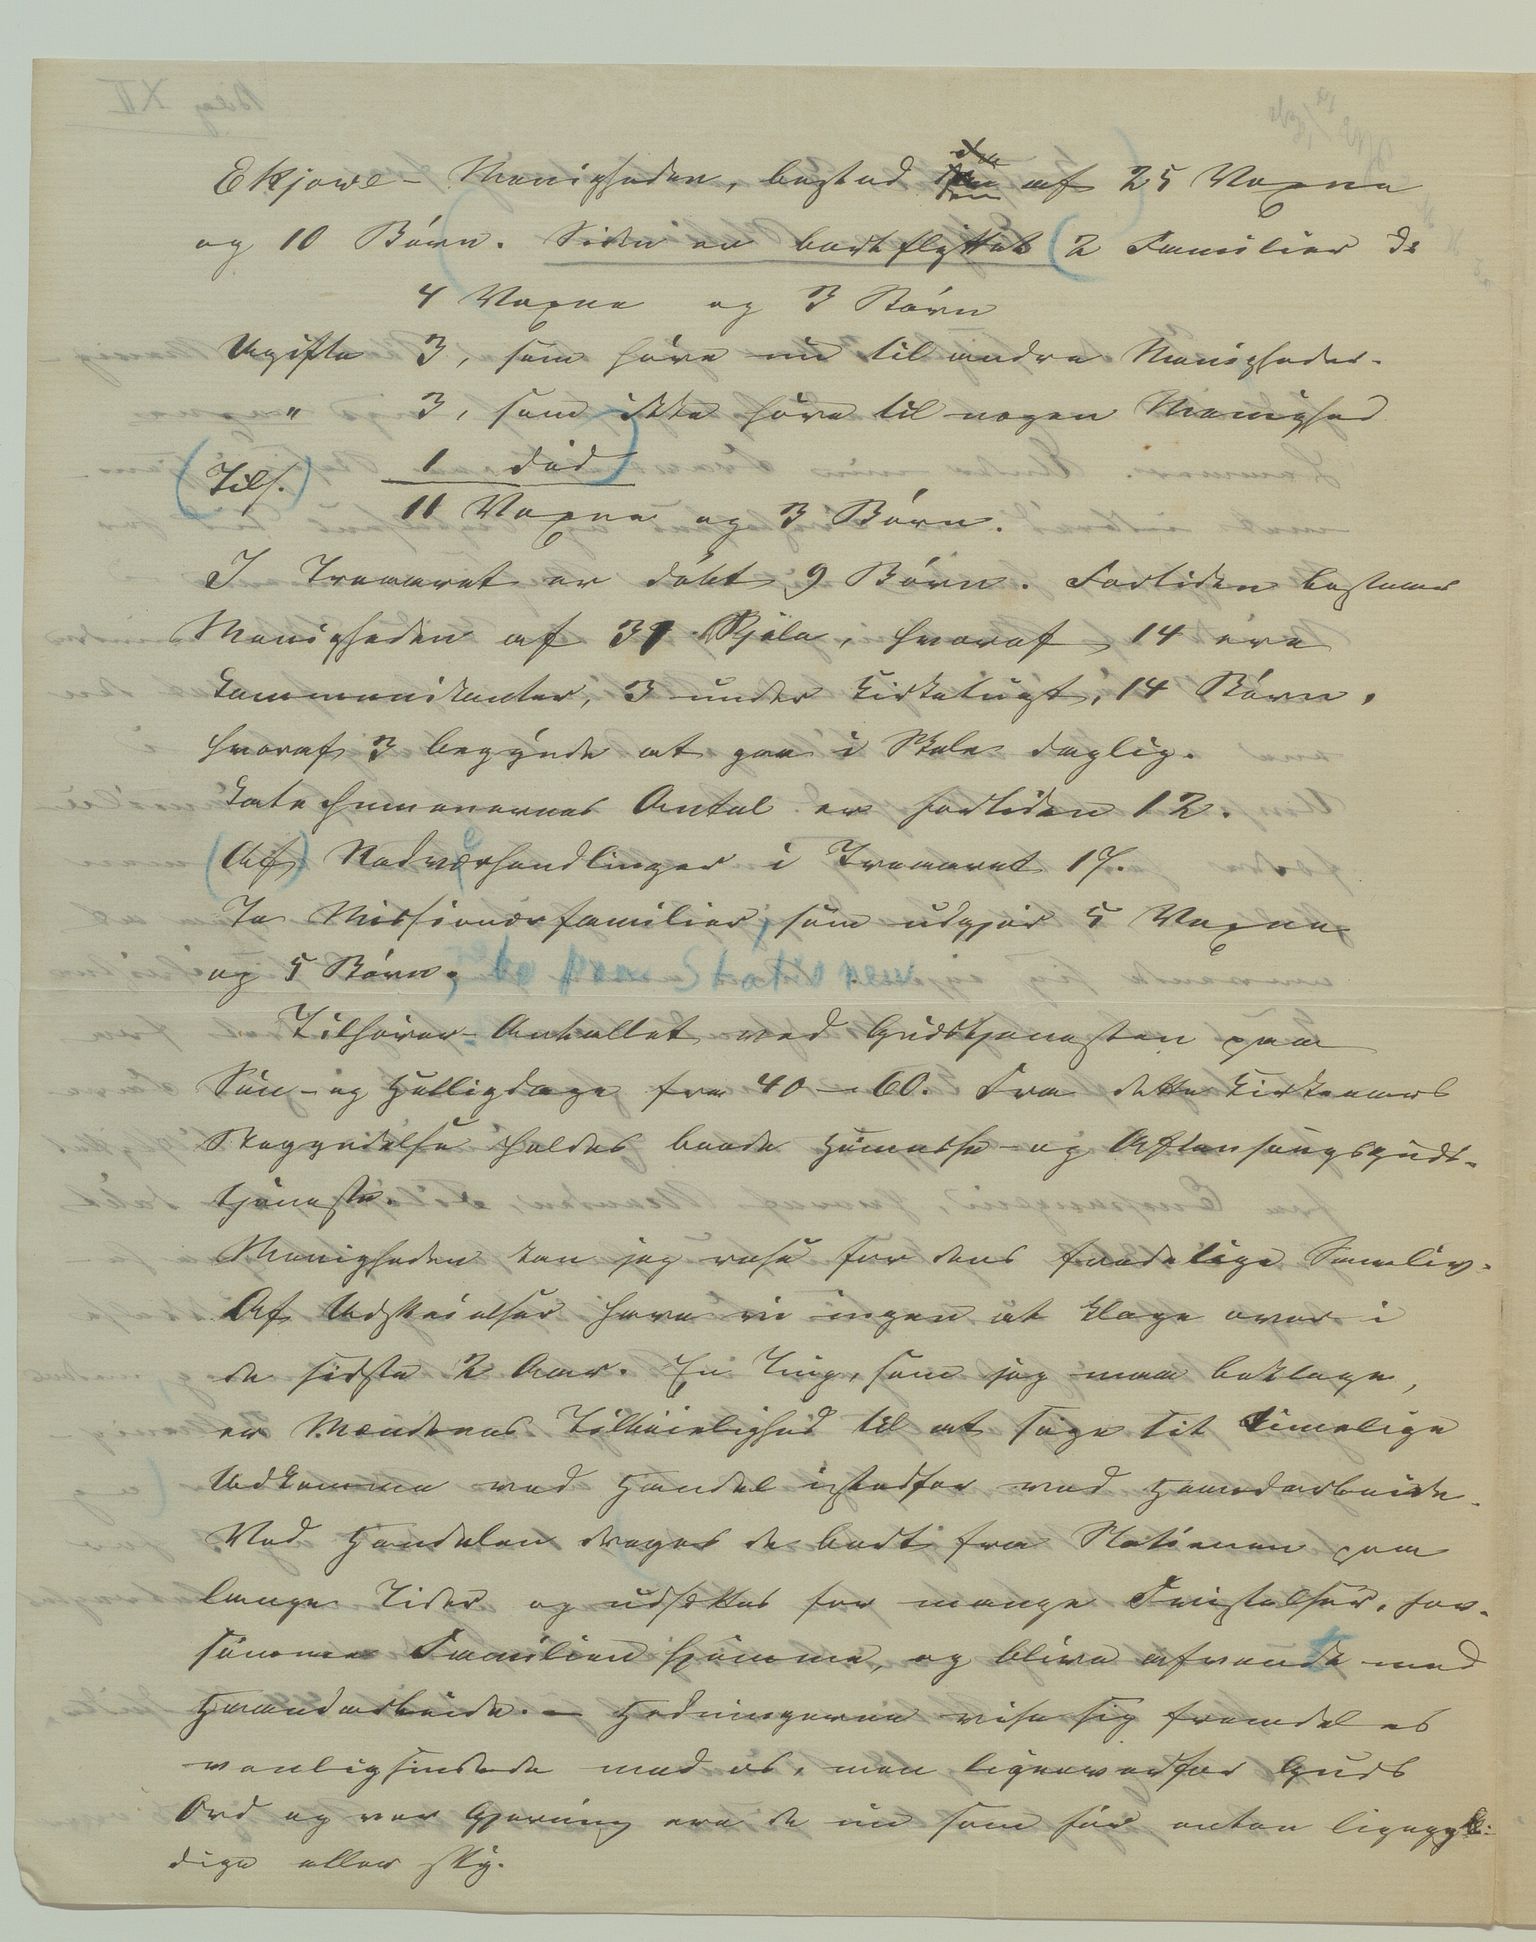 Ekjowe-Menigheden, bestod den af 25 Voxne
og 10 Børn. Siden er bortflyttet (2 Familier ɔ:
4 Voxne og 3 Børn
Ugifte 3, som høre nu til andre Menigheder.
" 3, som ikke høre til nogen Menighed
(Tils.) 1 død)
11 Voxne og 3 Børn.
I Treaaret er døbt 9 Børn. Fortiden bestaaer
Menigheden af 31 Sjæle, hvoraf 14 ere
Kommunikanter, 3 under Kirketugt, 14 Børn,
hvoraf 3 begynde at gaa i Skole daglig.
Katechumenernes Antal er fortiden 12.
(Af) Nadverhandlinger i Treaaret 17.
To Missionærfamilier, som udgjør 5 Voxne
og 5 Børn, bo paa Stationen
Tilhører-Antallet ved Gudstjenesten paa
Søn- og Helligdage fra 40–60. Fra dette Kirkeaars
Begyndelse holdes baade Høimesse- og Aftensangsguds-
tjeneste.
Menigheden kan jeg rose for dens fredelige Samliv.
Af Udskeielser have vi ingen at klage over i
de sidste 2 Aar. En Ting, som jeg maa beklage,
er Mændenes Tilbøielighed til at søge sit timelige
Udkomme ved Handel istedfor ved Haandarbeide.
Ved Handelen drages de bort fra Stationen paa
lange Tider og udsættes for mange Fristelser, for-
sømme Familien hjemme, og blive afvendte med
Haandarbeide. — Hedningerne vise sig fremdeles
venligsindede mod os, men ligeoverfor Guds
Ord og vor Gjerning ere de nu som før enten ligegyl-
dige eller sky.